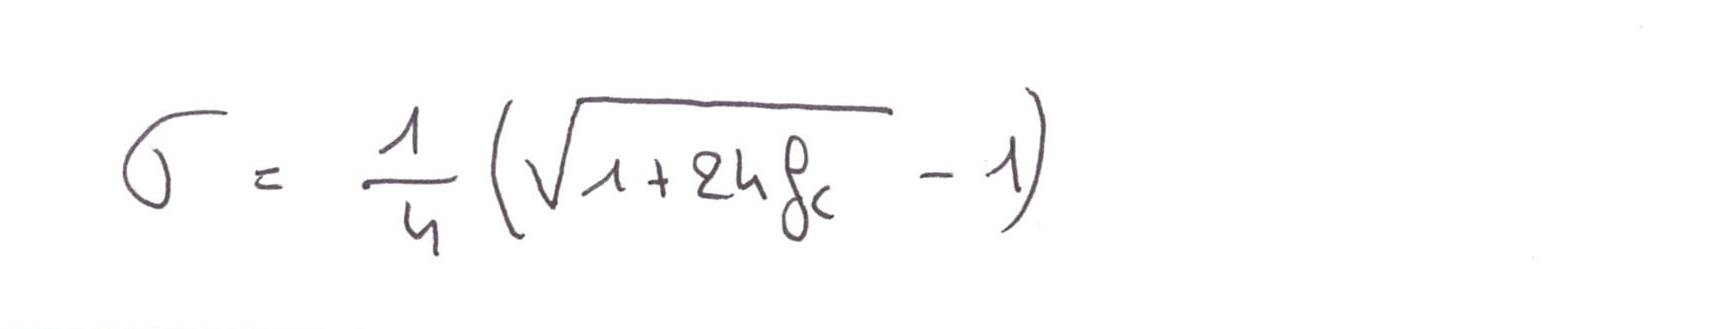 σ = 1/4 (√(1+24 f_c) - 1)